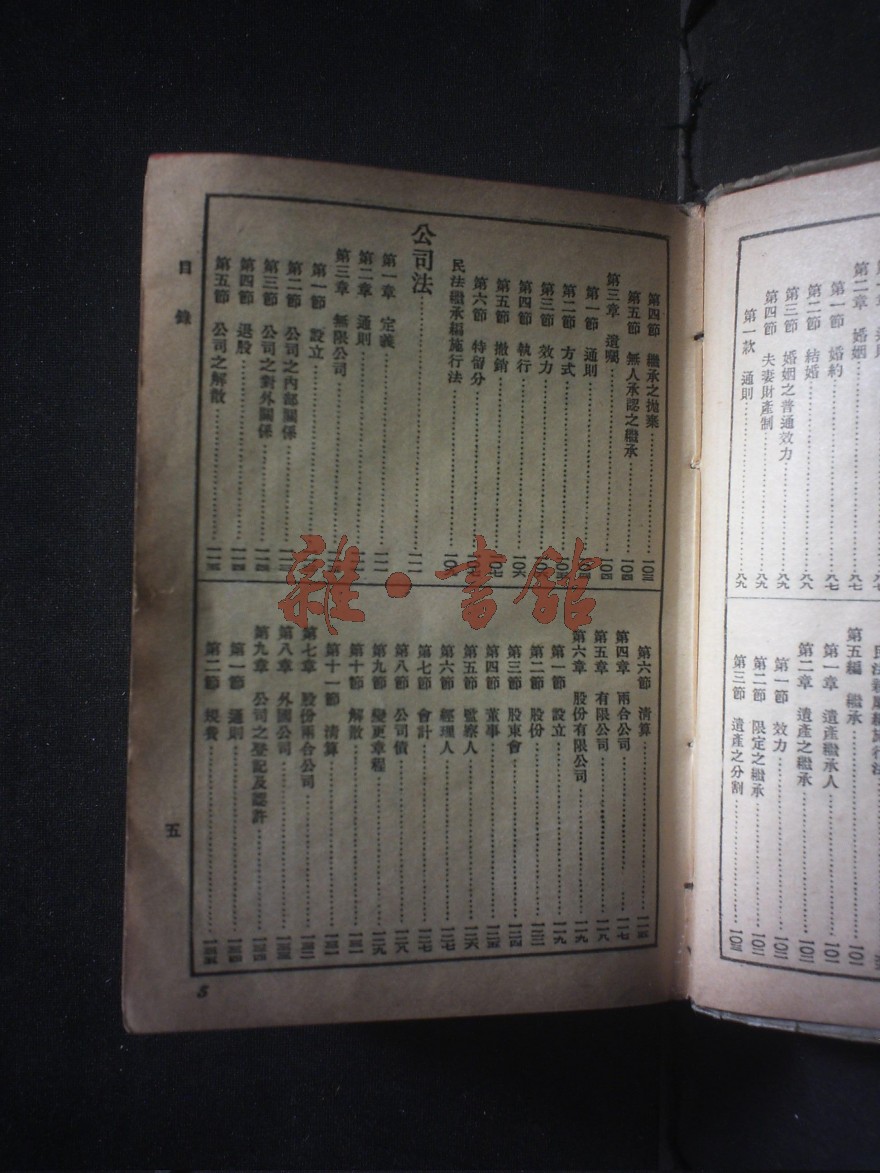 第二章 婚姻………八七
第一節 婚約………八七
第二節 結婚………八八
第三節 婚姻之普通效力………八九
第四節 夫妻財產制………八九
第一款 通則………八九
民法親屬編施行法
第五編 繼承………一〇一
第一章 遺產繼承人………一〇一
第二章 遺產之繼承………一〇二
第一節 效力………一〇二
第二節 限定之繼承………一〇二
第三節 遺產之分割………一〇三
第四節 繼承之拋棄………一〇三
第五節 無人承認之繼承………一〇四
第三章 遺囑………一〇四
第一節 通則………
第二節 方式………
第三節 效力………
第四節 執行………一〇六
第五節 撤銷………一〇七
第六節 特留分………
民法繼承編施行法………
公司法………一一一
第一章 定義………一一一
第二章 通則………一一一
第三章 無限公司………
第一節 設立………
第二節 公司之內部關係………
第三節 公司之對外關係………一一四
第四節 退股………一一四
第五節 公司之解散………一一五
第六節 清算………一一五
第四章 兩合公司………一一七
第五章 有限公司………一一八
第六章 股份有限公司………一一九
第一節 設立………一一九
第二節 股份………一二二
第三節 股東會………一二四
第四節 董事………一二五
第五節 監察人………一二六
第六節 經理人………一二七
第七節 會計………一二七
第八節 公司債………一二八
第九節 變更章程………一二九
第十節 解散………一三一
第十一節 清算………一三一
第七章 股份兩合公司………一三二
第八章 外國公司………一三三
第九章 公司之登記及認許………一三四
第一節 通則………一三四
第二節 規費………一三五
目錄
五
5
雜·書館